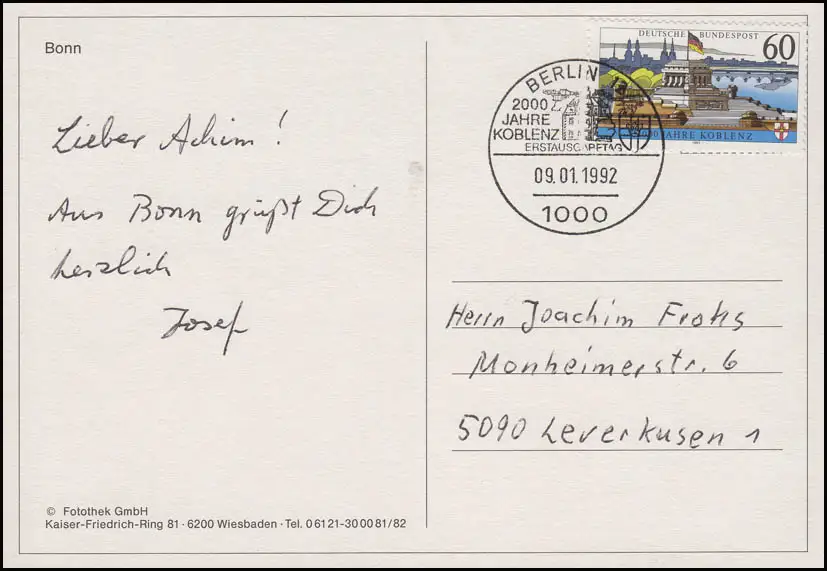 Bonn
Lieber Achim!
Aus Bonn grüßt Dich
herzlich
Josef
© Fotothek GmbH
Kaiser-Friedrich-Ring 81 · 6200 Wiesbaden · Tel. 06121-300081/82
DEUTSCHE BUNDESPOST 60
JAHRE KOBLENZ
BERLIN 12
2000
JAHRE
KOBLENZ
ERSTAUSGABETAG
09.01.1992
1000
Herrn Joachim Frohs
Monheimerstr. 6
5090 Leverkusen 1